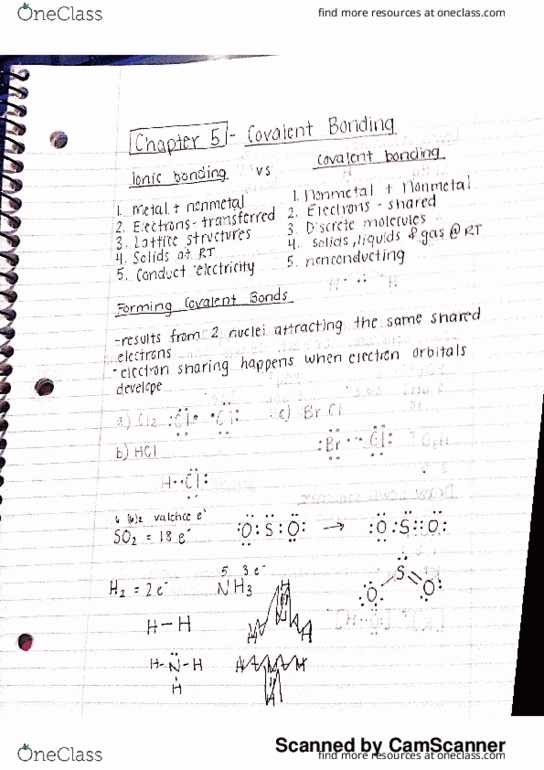 OneClass
find more resources at oneclass.com
Chapter 5 - Covalent Bonding
Ionic bonding vs Covalent bonding
1. Metal + nonmetal
2. Electrons - transferred
3. Lattice structures
4. Solids at RT
5. Conduct electricity
1. Nonmetal + Nonmetal
2. Electrons - shared
3. Discrete molecules
4. Solids, liquids & gas @ RT
5. nonconducting
Forming Covalent Bonds
-results from 2 nuclei attracting the same shared
electrons
-electron sharing happens when electron orbitals
develope
a) Cl2 :Cl· ·Cl: c) BrCl
b) HCl :Br··Cl:
H··Cl:
6 (6)2 valence e-
SO2 = 18 e- :O:S:O: → :O:S::O:
S
O O
H2 = 2e-
5 3 e-
NH3
H-H
H-N-H
H
Scanned by CamScanner
OneClass
find more resources at oneclass.com